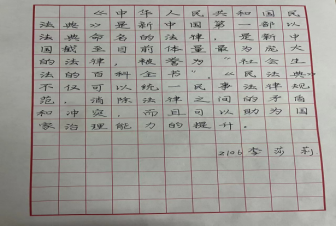 《中华人民共和国民
法典》是新中国第一部以
法典命名的法律,是新中
国截至目前体量最为庞大
的法律,被誉为“社会生
活的百科全书”,《民法典》
不仅可以统一民事法律规
范,消除法律之间的矛盾
和冲突,而且可以助力国
家治理能力的提升。
2106 李莎莉